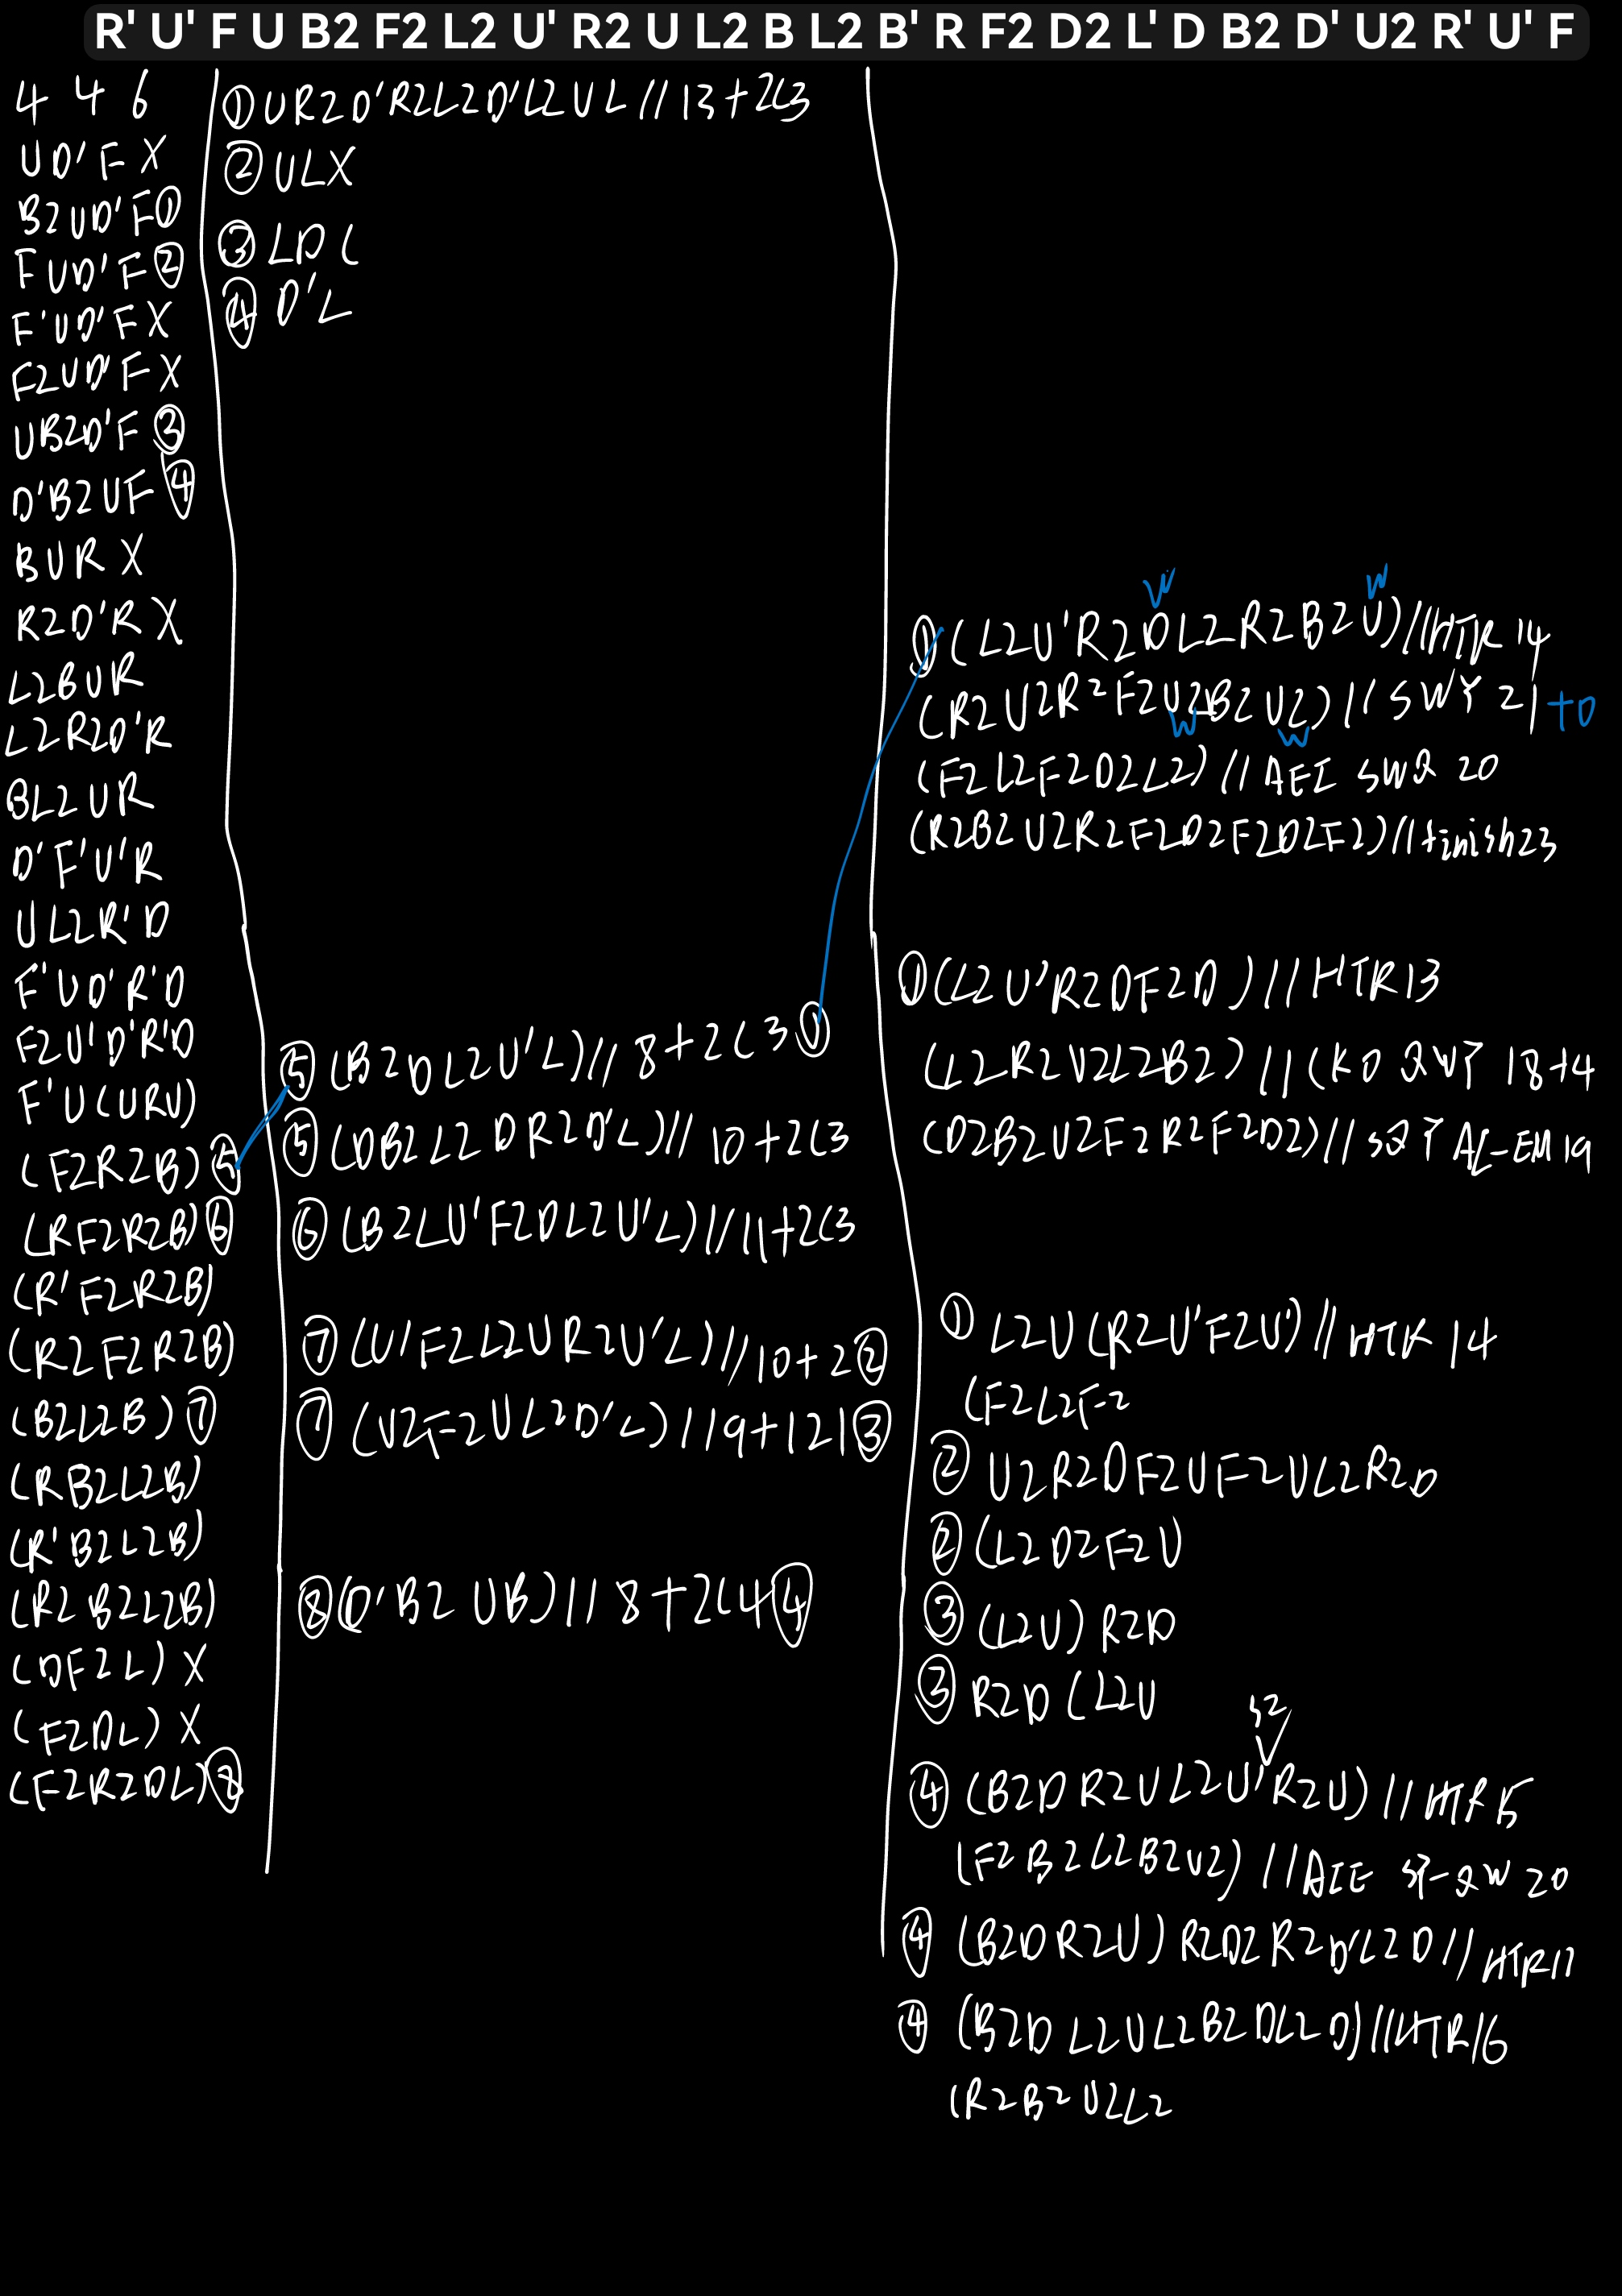 R' U' F U B2 F2 L2 U' R2 U L2 B L2 B' R F2 D2 L' D B2 D' U2 R' U' F
4 4 6
UD'F X
B2UD'F①
FUD'F②
F'UD'FX
F2UD'FX
UB2D'F③
D'B2UF④
BUR X
R2D'R X
L2BUR
L2R2D'R
BL2UR
D'F'U'R
UL2R'D
F'UD'R'D
F2U'D'R'D
F'U(URU)
(F2R2B)⑤
(RF2R2B)⑥
(R'F2R2B)
(R2F2R2B)
(B2L2B)⑦
(RB2L2B)
(R'B2L2B)
(R2B2L2B)
(DF2L) X
(F2DL) X
(F2R2DL)⑧
①UR2D'R2L2D'L2UL//13+2C3
②ULX
③LDL
④D'L
⑤(B2DL2U'L)//8+2C3①
⑤(DB2L2DR2D'L)//10+2C3
⑥(B2LU'F2DL2U'L)//11+2C3
⑦(U'F2L2UR2U'L)//10+2②
⑦(U2F2UL2D'L)//9+121③
⑧(D'B2UB)//8+2C4④
w w
①(L2U'R2DL2R2B2U)//HTR14
(R2U2R2F2U2B2U2)//SWY 21+0
w w
(F2L2F2D2L2)//AEI SWQ 20
(R2B2U2R2F2D2F2D2F2)//finish23
①(L2U'R2DF2D)//HTR13
(L2R2U2L2B2)//CKO QWY 18+4
(D2B2U2F2R2F2D2)//SQY AC-EM19
①L2U(R2U'F2U')//HTR 14
(F2L2F2
②U2R2DF2UF2UL2R2D
②(L2D2F2U)
③(L2U)R2D
③R2D(L2U
S2
④(B2DR2UL2U'R2U)//HTR15
(F2B2L2B2U2)//AIE SY-QW 20
④(B2DR2U)R2D2R2D'L2D//HTR17
④(B2DL2UL2B2DL2D)//HTR16
(R2B2U2L2